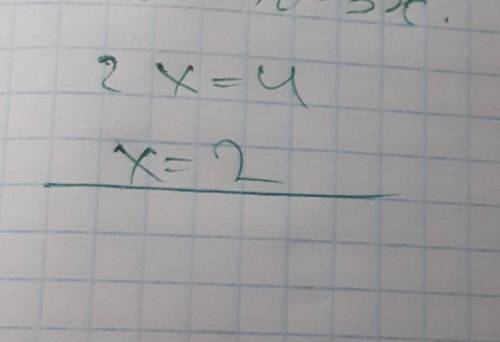 2 x = 4
x = 2